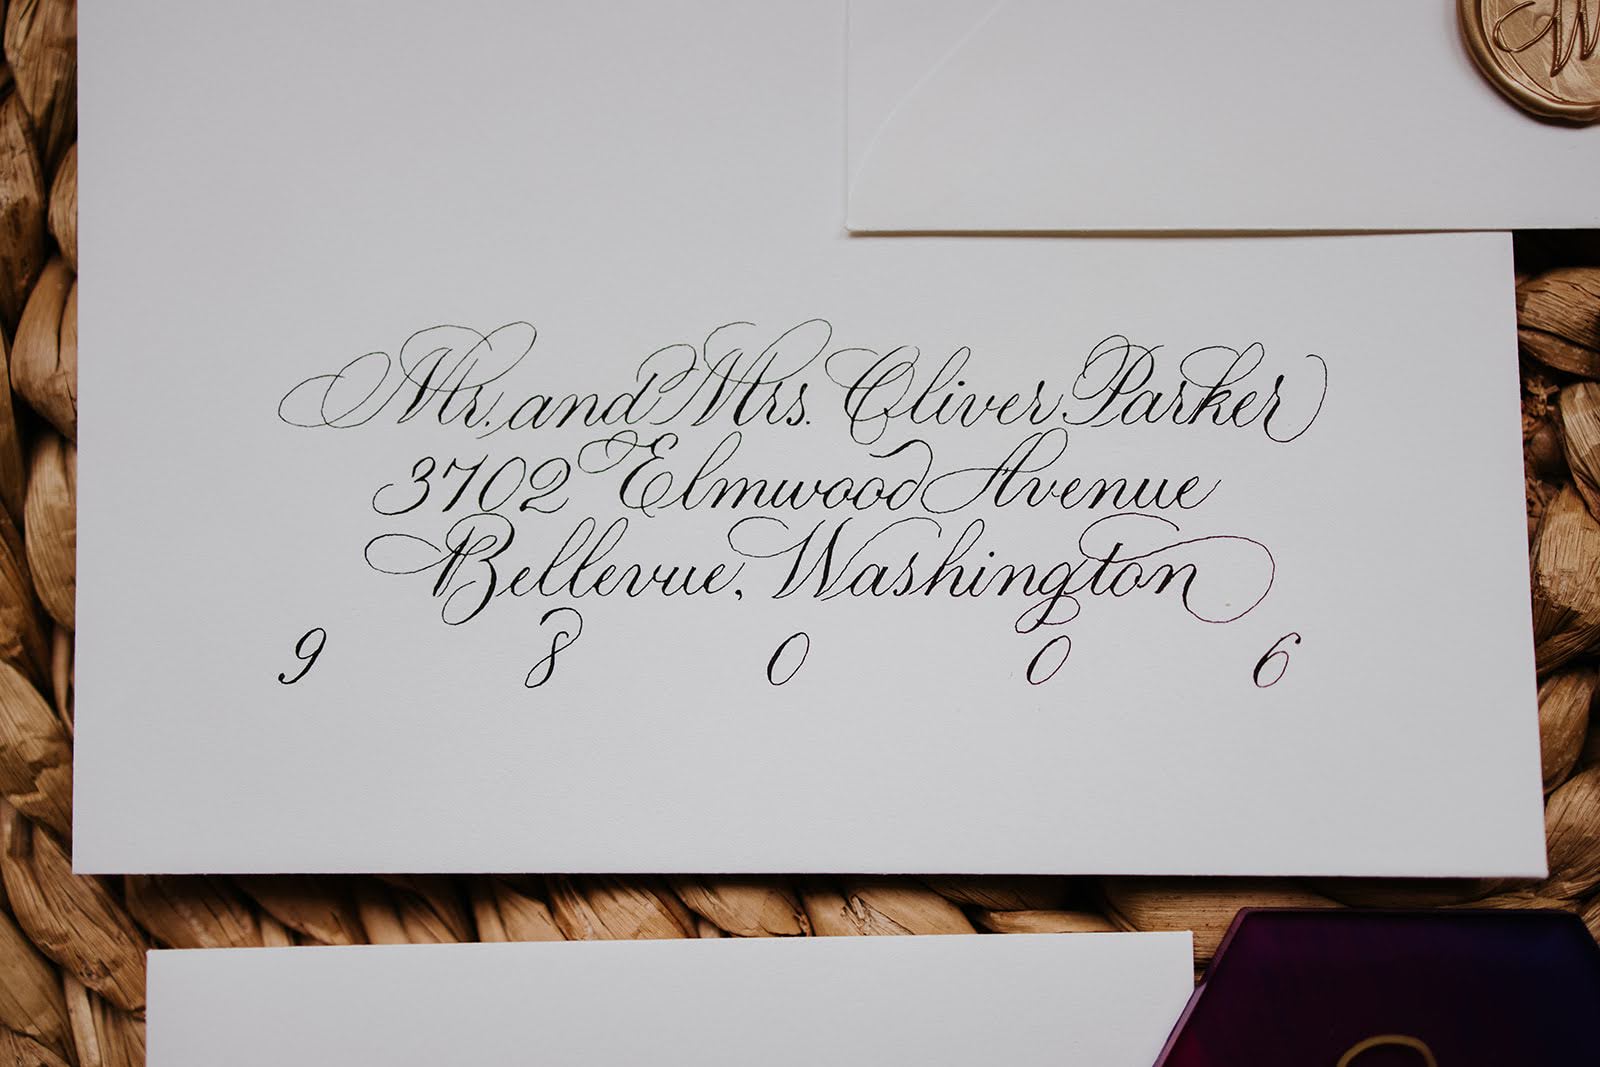 Mr. and Mrs. Oliver Parker
3702 Elmwood Avenue
Bellevue, Washington
9 8 0 0 6